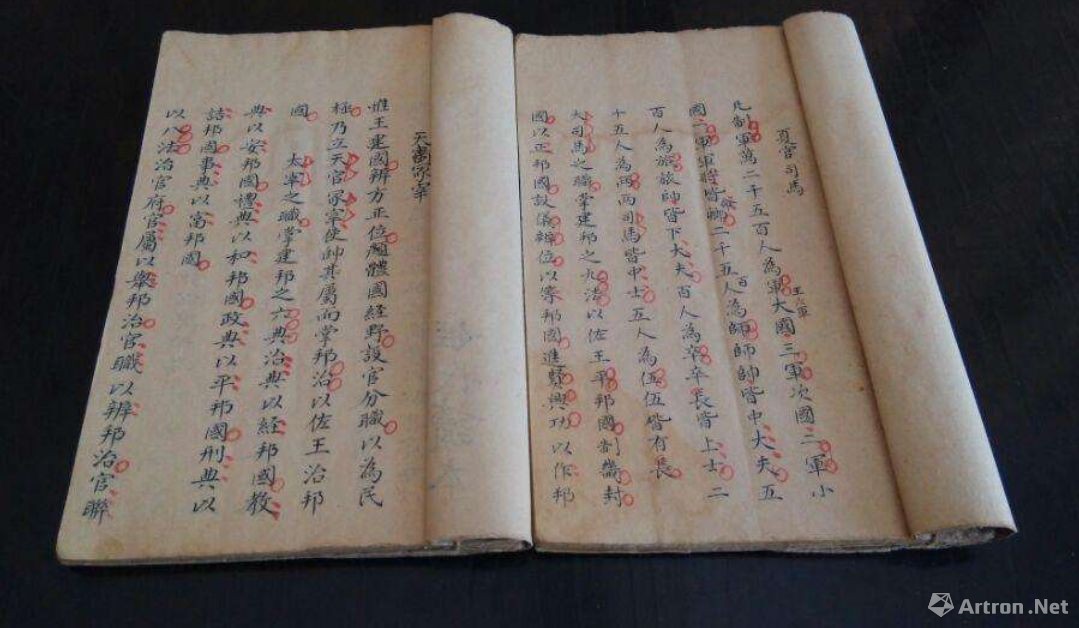 夏官司馬
凡制軍萬二千五百人為軍王六軍大國三軍次國二軍小
國一軍軍將皆命卿二千五百人為師師帥皆中大夫五
百人為旅旅帥皆下大夫百人為卒卒長皆上士二
十五人為兩兩司馬皆中士五人為伍伍皆有長
大司馬之職掌建邦之九法以佐王平邦國制畿封
國以正邦國設儀辨位以等邦國進賢興功以作邦
天官冢宰
惟王建國辨方正位體國經野設官分職以為民
極乃立天官冢宰使帥其屬而掌邦治以佐王治邦
國 太宰之職掌建邦之六典治典以經邦國教
典以安邦國禮典以和邦國政典以平邦國刑典以
詰邦國事典以富邦國
以八法治官府官屬以舉邦治官職以辨邦治官聯
Artron.Net